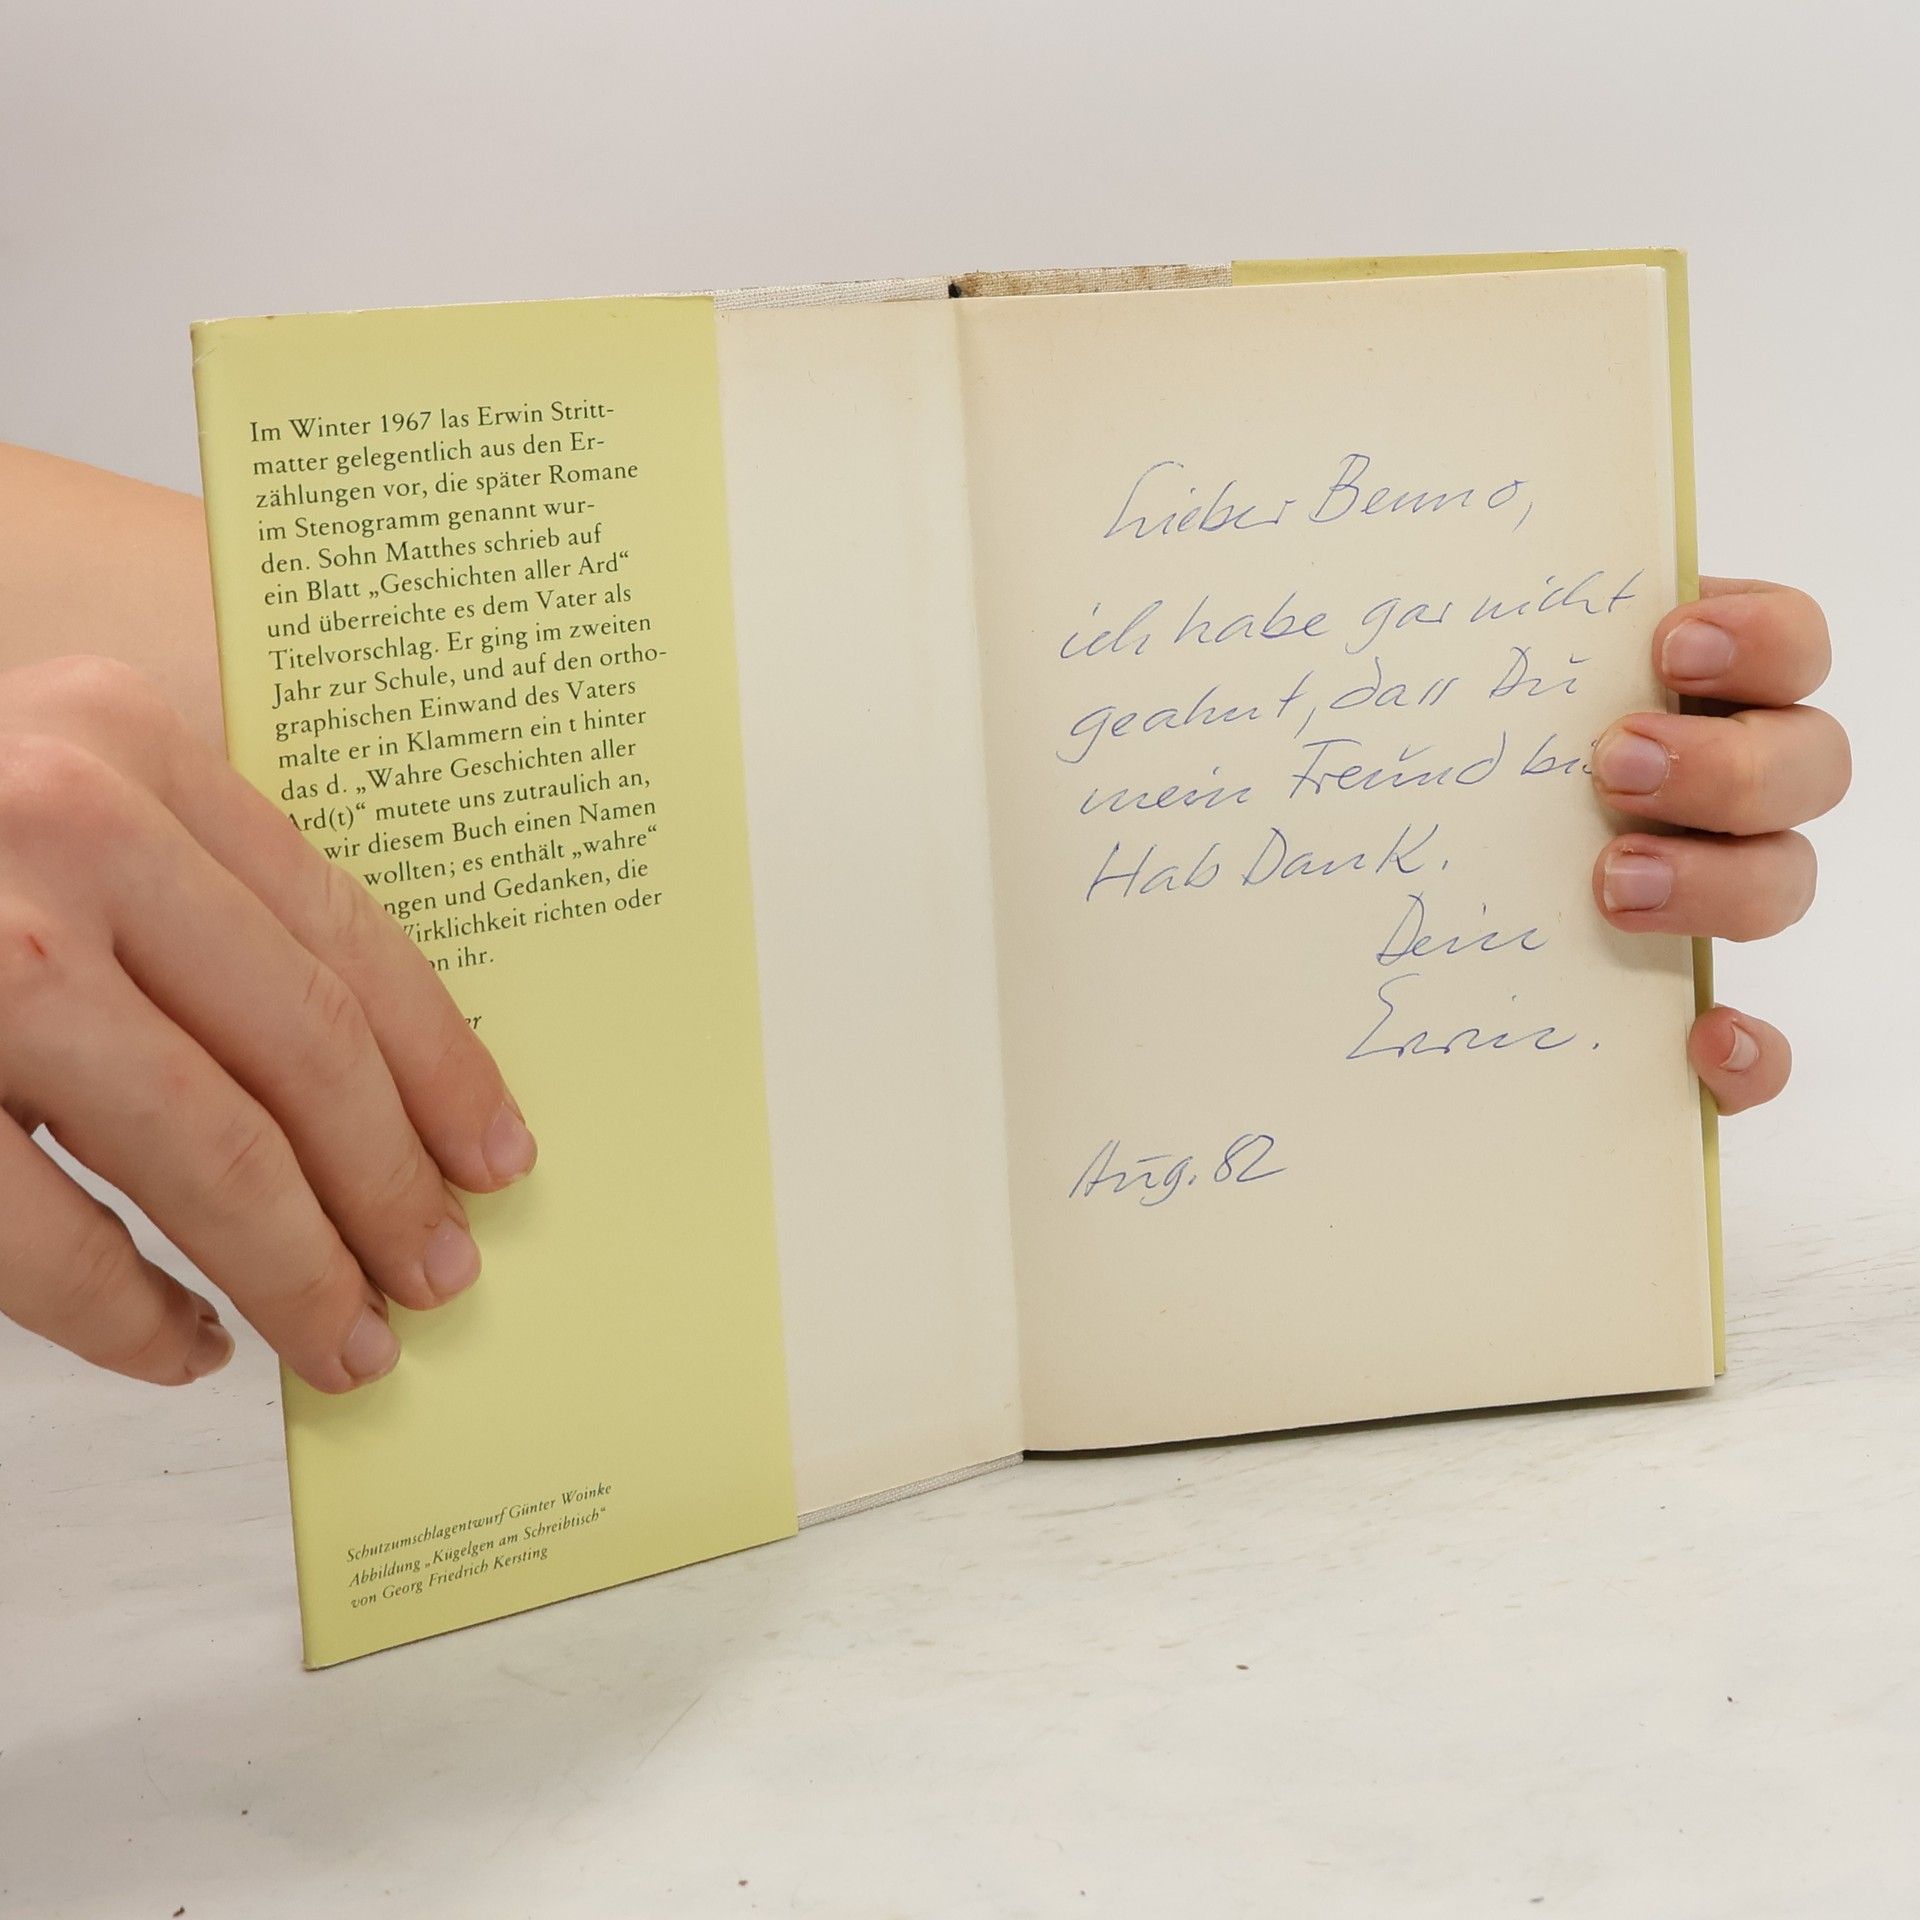 Im Winter 1967 las Erwin Stritt-
matter gelegentlich aus den Er-
zählungen vor, die später Romane
im Stenogramm genannt wur-
den. Sohn Matthes schrieb auf
ein Blatt „Geschichten aller Ard“
und überreichte es dem Vater als
Titelvorschlag. Er ging im zweiten
Jahr zur Schule, und auf den ortho-
graphischen Einwand des Vaters
malte er in Klammern ein t hinter
das d. „Wahre Geschichten aller
Ard(t)“ mutete uns zutraulich an,
wir diesem Buch einen Namen
wollten; es enthält „wahre“
ngen und Gedanken, die
Wirklichkeit richten oder
on ihr.
er
Schutzumschlagentwurf Günter Woinke
Abbildung „Kügelgen am Schreibtisch“
von Georg Friedrich Kersting
Lieber Benno,
ich habe gar nicht
geahnt, dass Du
mein Freund bis
Hab Dank.
Dein
Erwin.
Aug. 82